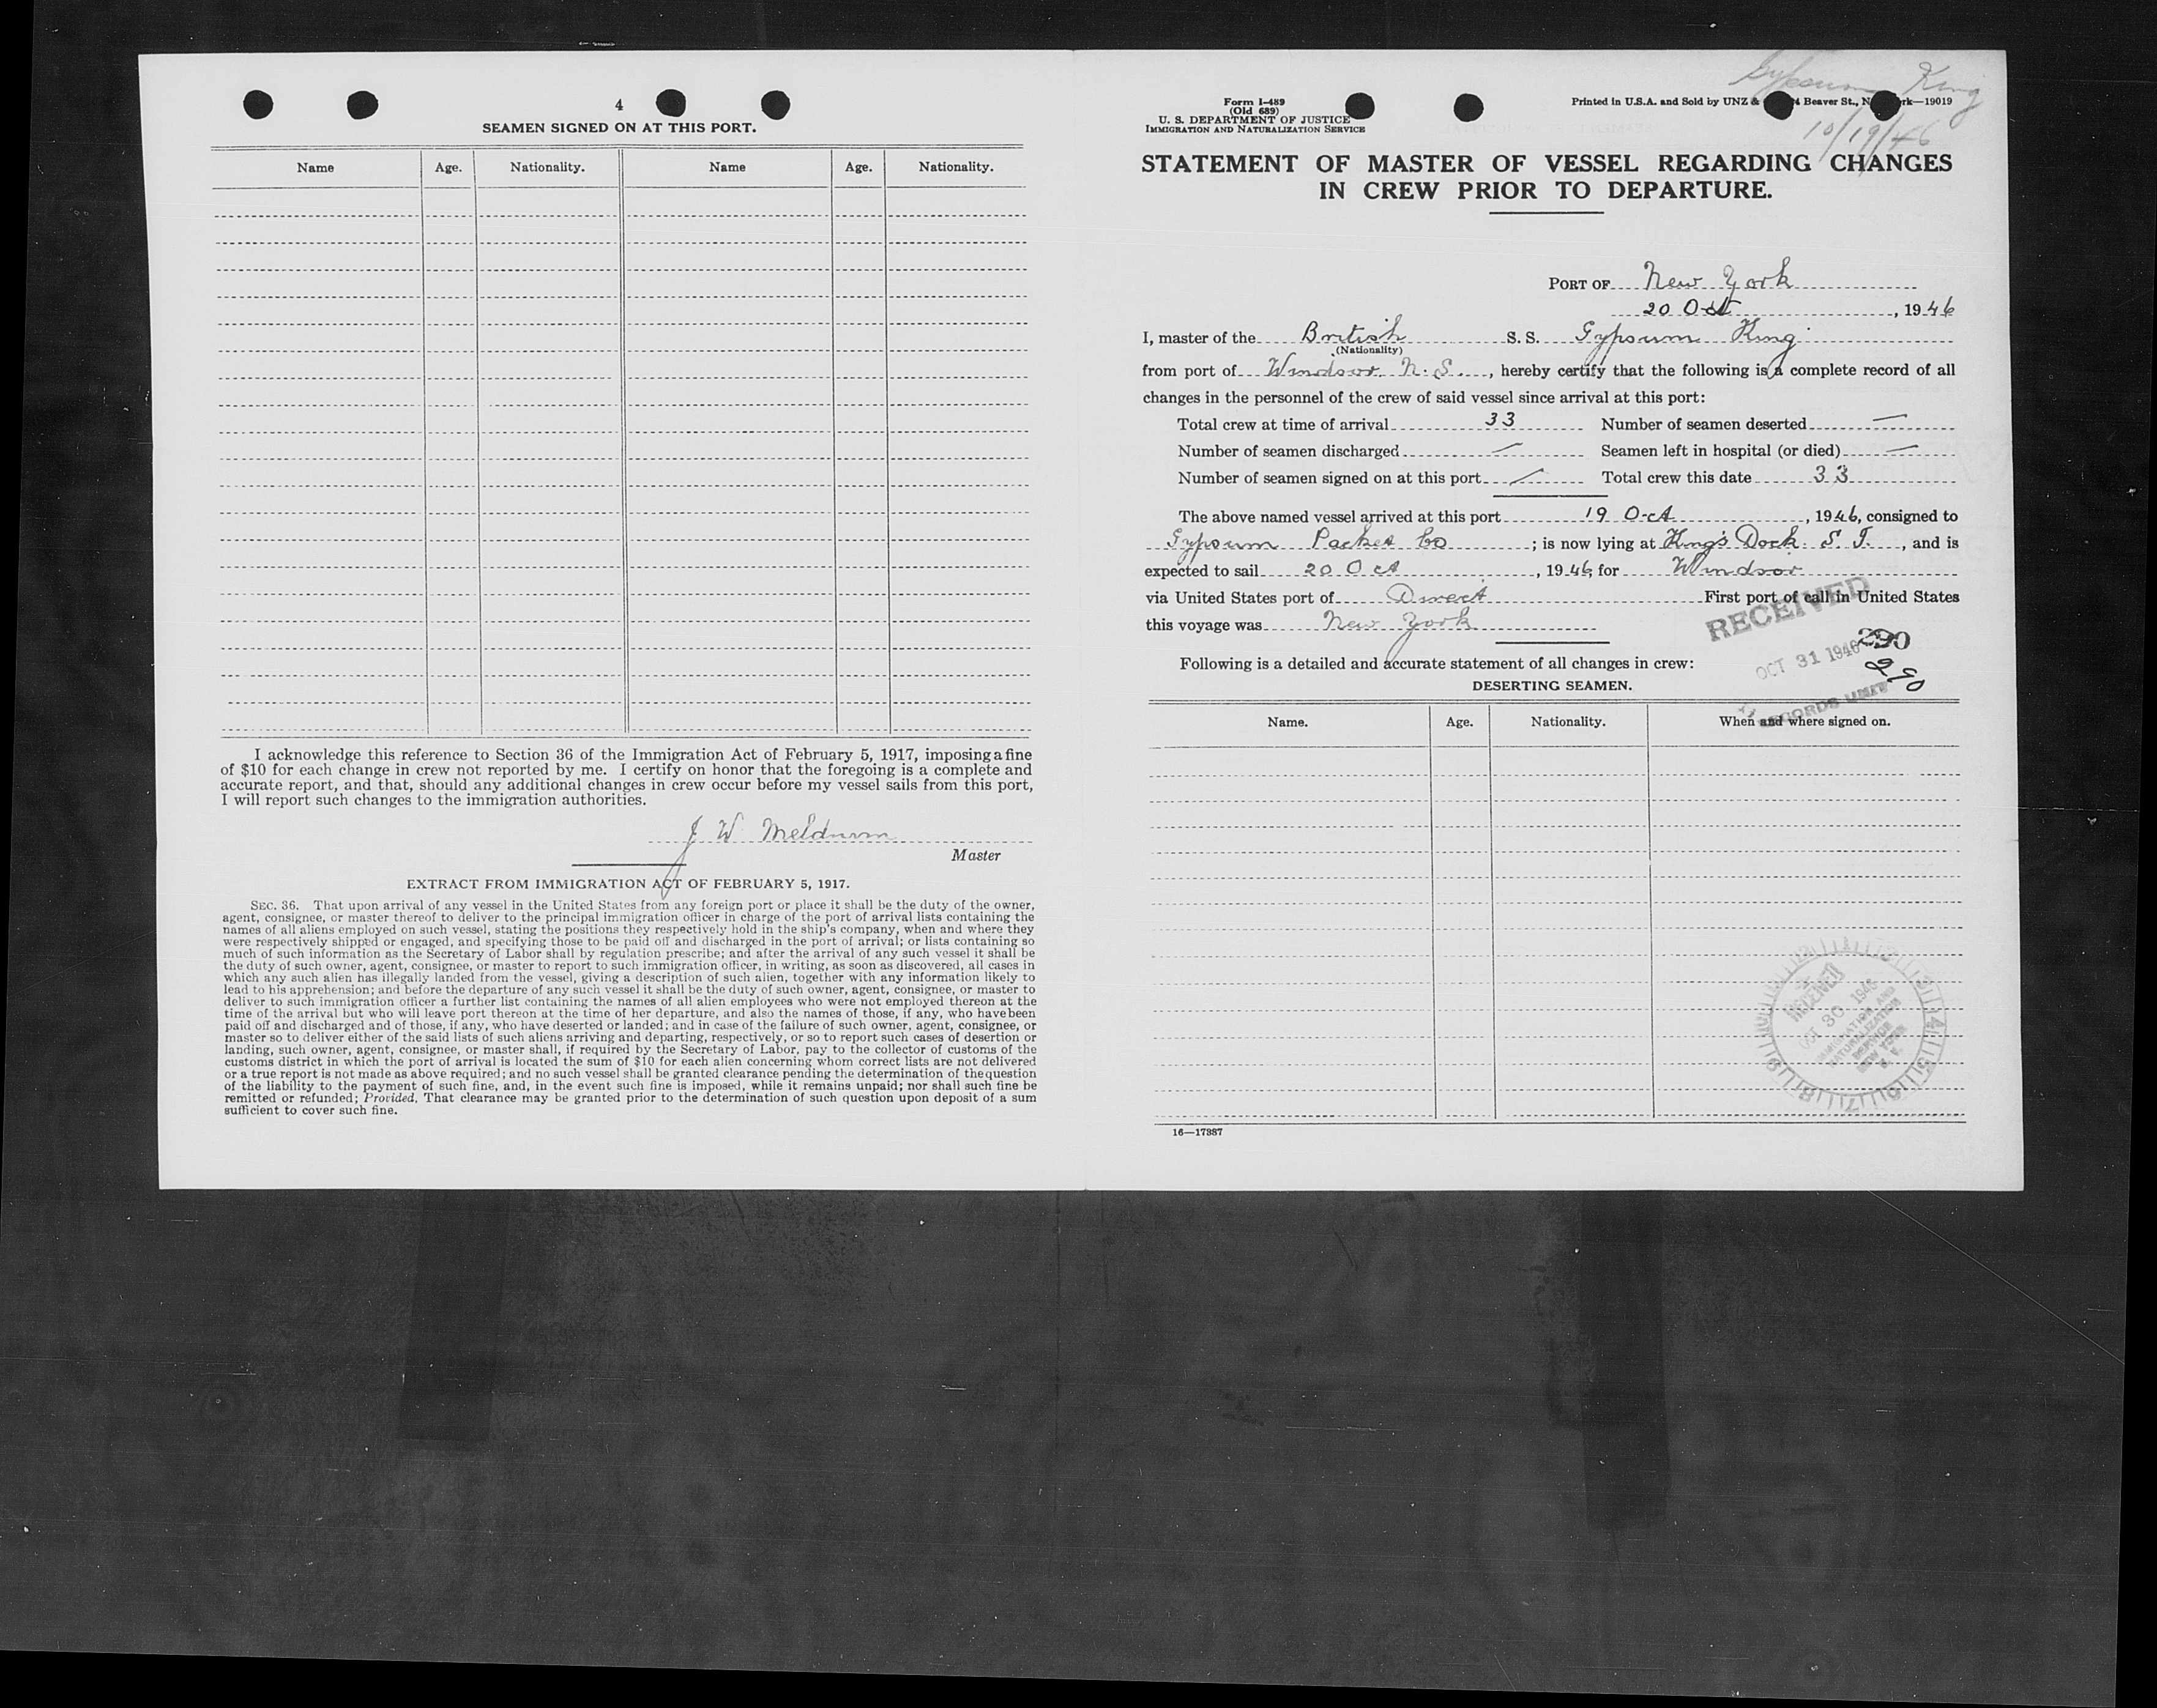 4
SEAMEN SIGNED ON AT THIS PORT.
Name Age. Nationality. Name Age. Nationality.
I acknowledge this reference to Section 36 of the Immigration Act of February 5, 1917, imposing a fine
of $10 for each change in crew not reported by me. I certify on honor that the foregoing is a complete and
accurate report, and that, should any additional changes in crew occur before my vessel sails from this port,
I will report such changes to the immigration authorities.
J W Meldrum
Master
EXTRACT FROM IMMIGRATION ACT OF FEBRUARY 5, 1917.
SEC. 36. That upon arrival of any vessel in the United States from any foreign port or place it shall be the duty of the owner,
agent, consignee, or master thereof to deliver to the principal immigration officer in charge of the port of arrival lists containing the
names of all aliens employed on such vessel, stating the positions they respectively hold in the ship's company, when and where they
were respectively shipped or engaged, and specifying those to be paid off and discharged in the port of arrival; or lists containing so
much of such information as the Secretary of Labor shall by regulation prescribe; and after the arrival of any such vessel it shall be
the duty of such owner, agent, consignee, or master to report to such immigration officer, in writing, as soon as discovered, all cases in
which any such alien has illegally landed from the vessel, giving a description of such alien, together with any information likely to
lead to his apprehension; and before the departure of any such vessel it shall be the duty of such owner, agent, consignee, or master to
deliver to such immigration officer a further list containing the names of all alien employees who were not employed thereon at the
time of the arrival but who will leave port thereon at the time of her departure, and also the names of those, if any, who have been
paid off and discharged and of those, if any, who have deserted or landed; and in case of the failure of such owner, agent, consignee, or
master so to deliver either of the said lists of such aliens arriving and departing, respectively, or so to report such cases of desertion or
landing, such owner, agent, consignee, or master shall, if required by the Secretary of Labor, pay to the collector of customs of the
customs district in which the port of arrival is located the sum of $10 for each alien concerning whom correct lists are not delivered
or a true report is not made as above required; and no such vessel shall be granted clearance pending the determination of the question
of the liability to the payment of such fine, and, in the event such fine is imposed, while it remains unpaid; nor shall such fine be
remitted or refunded; Provided, That clearance may be granted prior to the determination of such question upon deposit of a sum
sufficient to cover such fine.
Gypsum King
10/19/46
Form I-489
(Old 689)
U. S. DEPARTMENT OF JUSTICE
IMMIGRATION AND NATURALIZATION SERVICE
Printed in U.S.A. and Sold by UNZ & Beaver St., N rk—19019
STATEMENT OF MASTER OF VESSEL REGARDING CHANGES
IN CREW PRIOR TO DEPARTURE.
PORT OF New York
20 Oct, 1946
I, master of the British S. S. Gypsum King
(Nationality)
from port of Windsor N. S., hereby certify that the following is a complete record of all
changes in the personnel of the crew of said vessel since arrival at this port:
Total crew at time of arrival 33 Number of seamen deserted —
Number of seamen discharged — Seamen left in hospital (or died) —
Number of seamen signed on at this port — Total crew this date 33
The above named vessel arrived at this port 19 Oct, 1946, consigned to
Gypsum Packet Co; is now lying at King's Dock S. I., and is
expected to sail 20 Oct, 1946, for Windsor
via United States port of Direct First port of call in United States
this voyage was New York
RECEIVED
OCT 31 1946
RECORDS UNIT
290
290
Following is a detailed and accurate statement of all changes in crew:
DESERTING SEAMEN.
Name. Age. Nationality. When and where signed on.
RECEIVED
OCT 30 1946
IMMIGRATION AND
NATURALIZATION
SERVICE
NEW YORK
N. Y.
16—17887